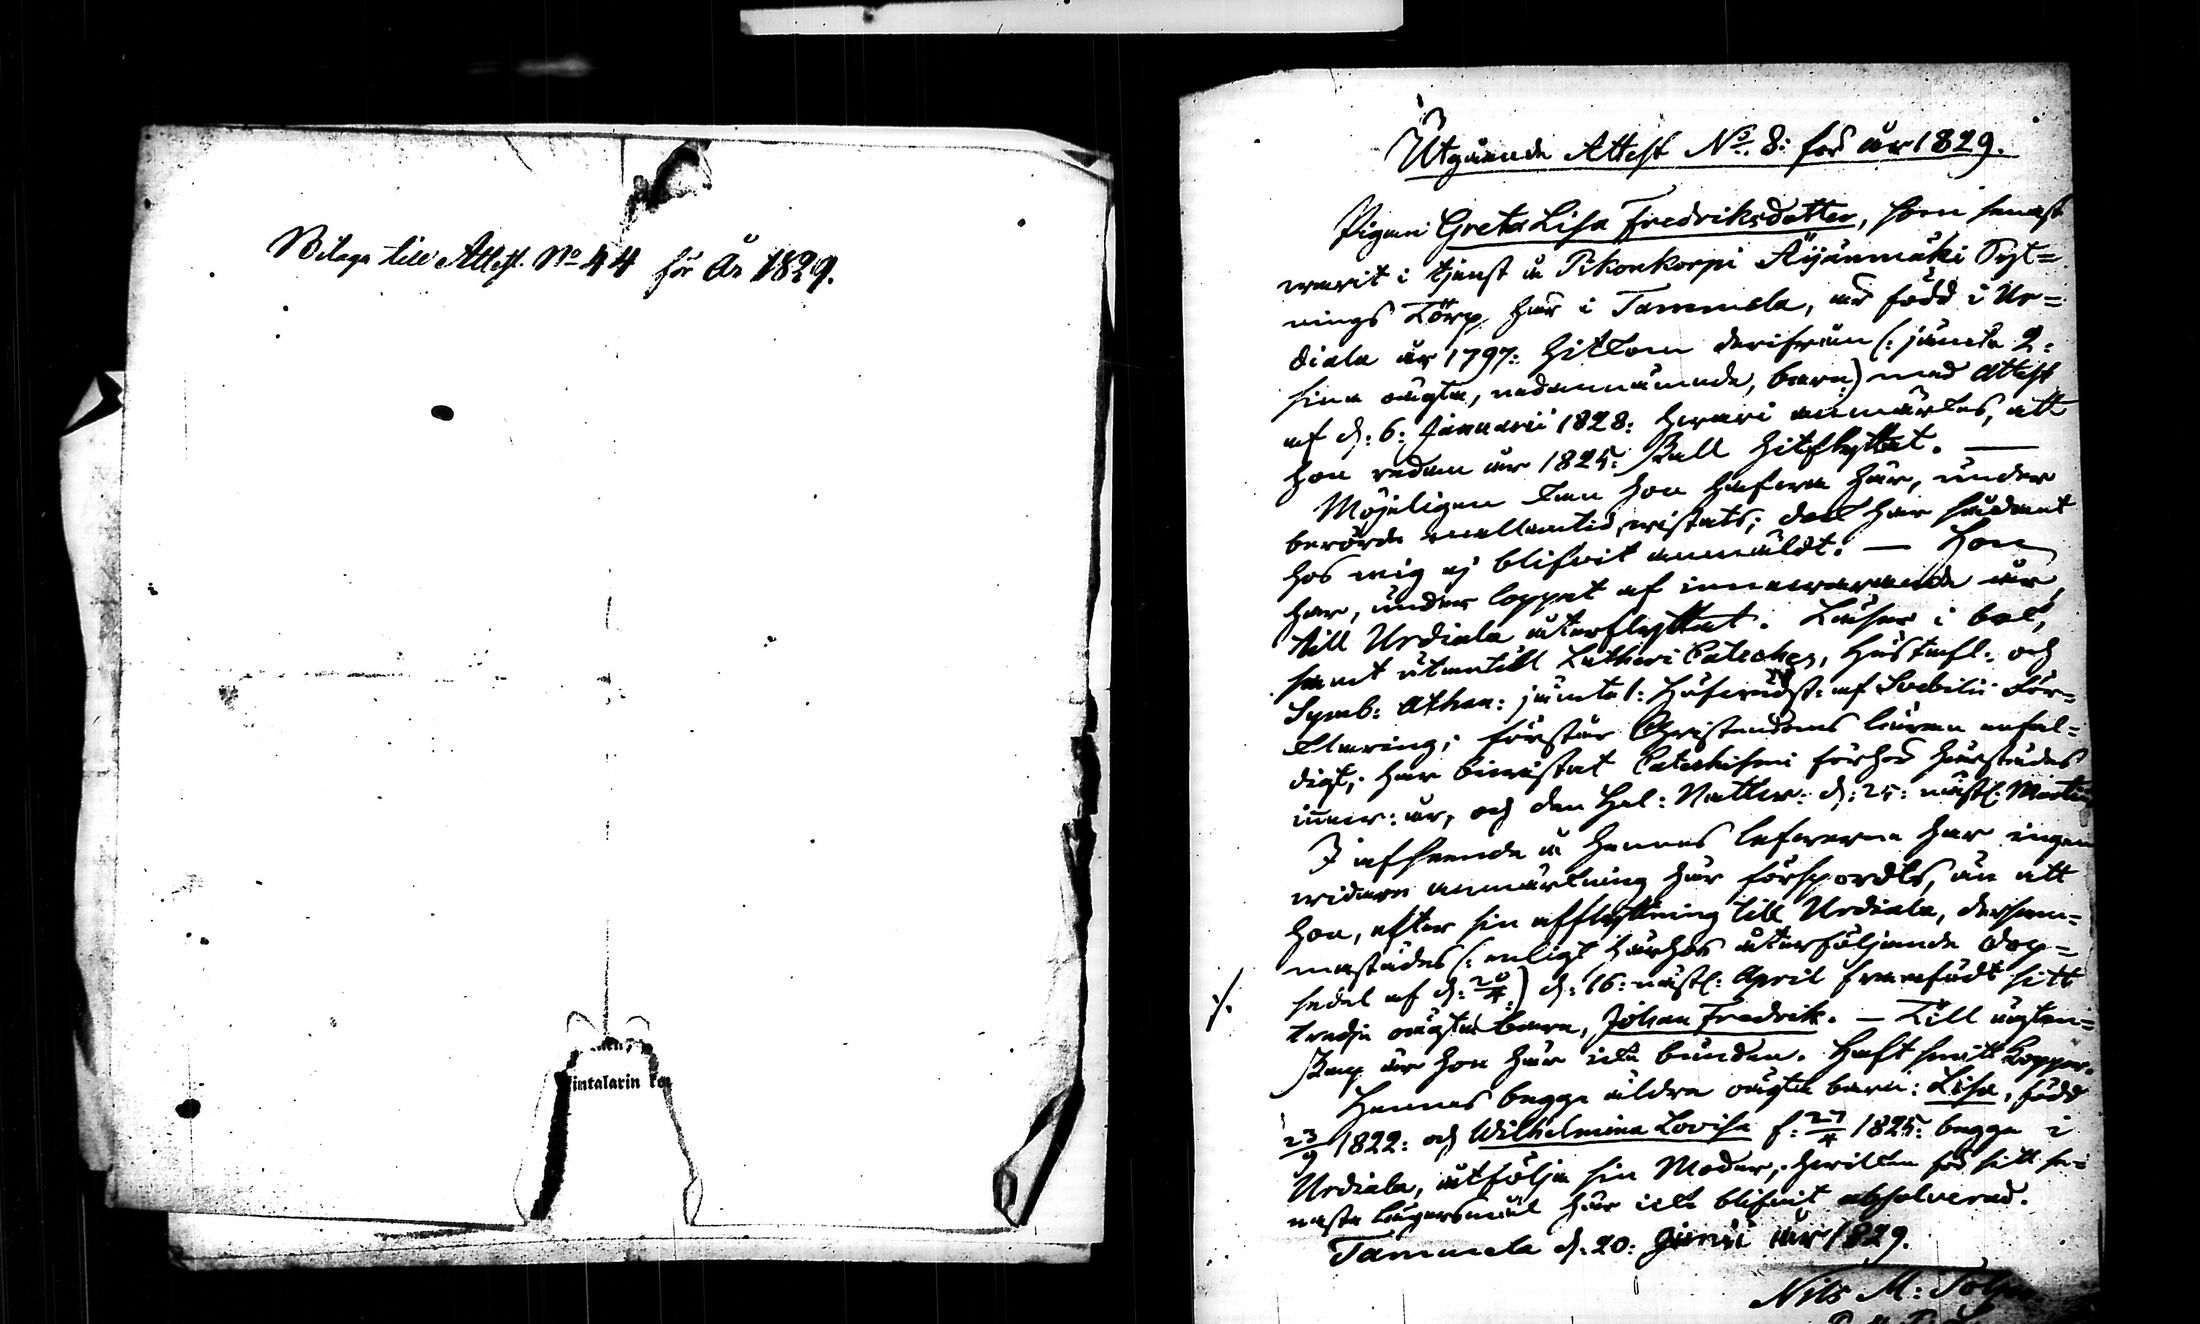 Bilaga till Attest. No 44 för År 1829.
intalarin
Utgående Attest No. 8: för år 1829.
Pigan Greta Lisa Fredriksdotter, som senast
warit i tjenst å Pikonkorpi Äijänmäki Syt=
nings Torp här i Tammela, är född i Ur=
diala år 1797: hitkom derifrån (: jämte 2:
sina oägta, nedannämnde, barn) med Attest
af d: 6: Januarii 1828: hwari anmärkes, att
hon redan år 1825: skall hitflyttat. —
Möjeligen kan hon hafwa här, under
berörde mellantid, wistats; dock har sådant
hos mig ej blifwit anmäldt. — Hon
har, under loppet af innewarande år,
till Urdiala återflyttat. Läser i bok,
samt utantill Lutheri Cateches, Hustafl: och
Symb: Athan: jämte Hufwudst: af Svebilii För=
klaring; förstår Christendoms läran enfal=
digt; har biwistat Catechismi förhör härstädes
innew: år, och den Hel: Nattw: d: 25: nästl: Martii
I afseende å hennes lefwerne har ingen
widare anmärkning här försports, än att
hon, efter sin afflyttning till Urdiala, dersam=
mastädes (: enligt härhos återföljande Dop=
sedel af d: 20/4:) d: 16: nästl: April framfödt sitt
tredje oägta barn, Johan Fredrik. — Till ägten=
skap är hon här icke bunden. Haft smittkoppor.
Hennes begge äldre oägta barn: Lisa, född
23/9 1822: och Wilhelmina Lovisa f: 27/4 1825: begge i
Urdiala, åtfölja sin Moder, hwilken för sitt se=
naste lägersmål här icke blifwit absolverad.
Tammela d: 20: Junii år 1829.
Nils M: